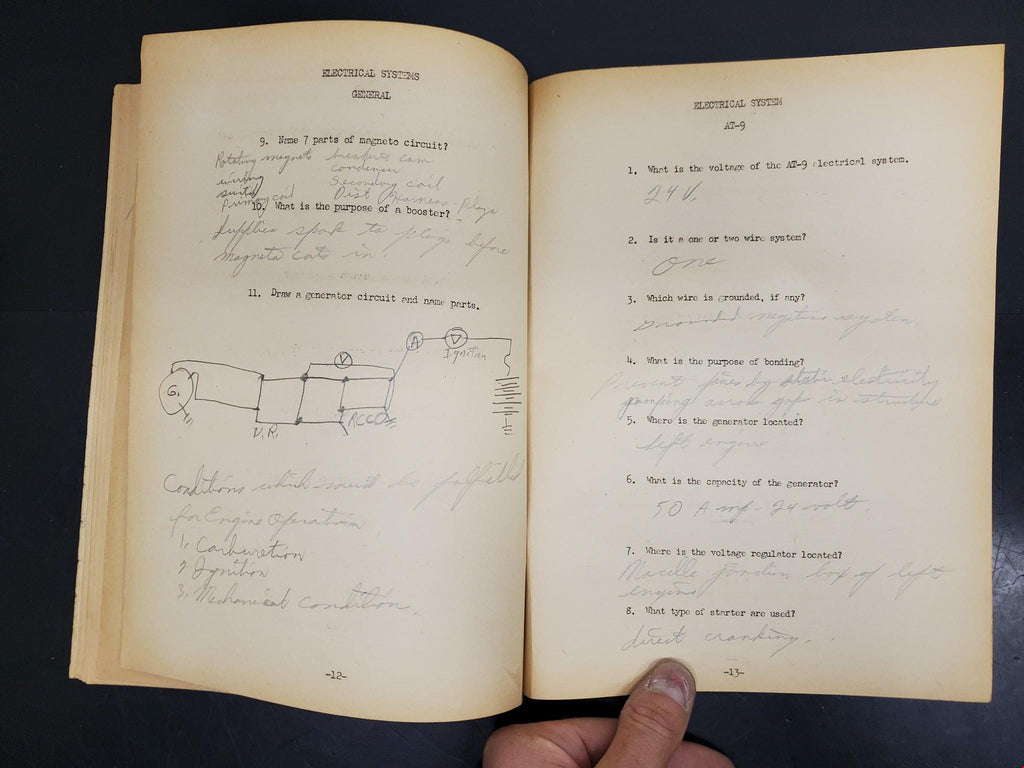 ELECTRICAL SYSTEMS
GENERAL
9. Name 7 parts of magneto circuit?
Rotating magnets breakers cam
wiring condenser
switch Secondary coil
Primary coil Dist Harness - Plugs
10. What is the purpose of a booster?
Supplies spark to plugs before
magneto cuts in.
11. Draw a generator circuit and name parts.
A
V
Ignition
G.
V.R.
RCCO
Conditions which must be fulfilled
for Engine Operation
1. Carburetion
2 Ignition
3. Mechanical condition.
-12-
ELECTRICAL SYSTEM
AT-9
1. What is the voltage of the AT-9 electrical system.
24 V.
2. Is it a one or two wire system?
One
3. Which wire is grounded, if any?
Grounded negative system.
4. What is the purpose of bonding?
Prevent fires by static electricity
jumping across gaps in structure
5. Where is the generator located?
Left engine
6. What is the capacity of the generator?
50 Amp - 24 volt.
7. Where is the voltage regulator located?
junction box of left
engine
8. What type of starter are used?
direct cranking.
-13-